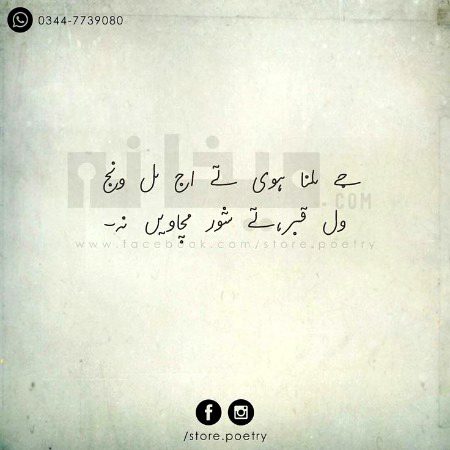 0344-7739080
میخانہ
.COM
جے ملنا ہوی تے اج مل ونج
ول قبر،تے شور مچاویں نہ-
www.facebook.com/store.poetry
/store.poetry